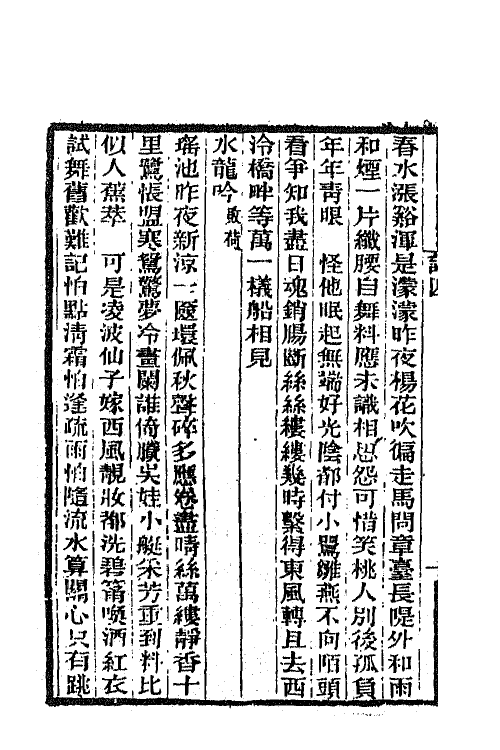 春水漲谿渾是濛濛昨夜楊花吹徧走馬問章臺長隄外和雨
和煙一片纖腰自舞料應未識相思怨可惜笑桃人別後孤負
年年靑眼　怪他眠起無端好光陰都付小鶯雛燕不向陌頭
看爭知我盡日魂銷腸斷絲絲縷縷幾時繫得東風轉且去西
泠橋畔等萬一檥船相見
水龍吟敗荷
瑤池昨夜新涼一隊環佩秋聲碎多應卷盡晴絲萬縷靜香十
里鷺悵盟寒鴛驚夢冷畫闌誰倚賸吳娃小艇采芳重到料比
似人蕉萃　可是凌波仙子嫁西風靚妝都洗碧筩喚酒紅衣
試舞舊歡難記怕點淸霜怕逢疏雨怕隨流水算關心只有跳